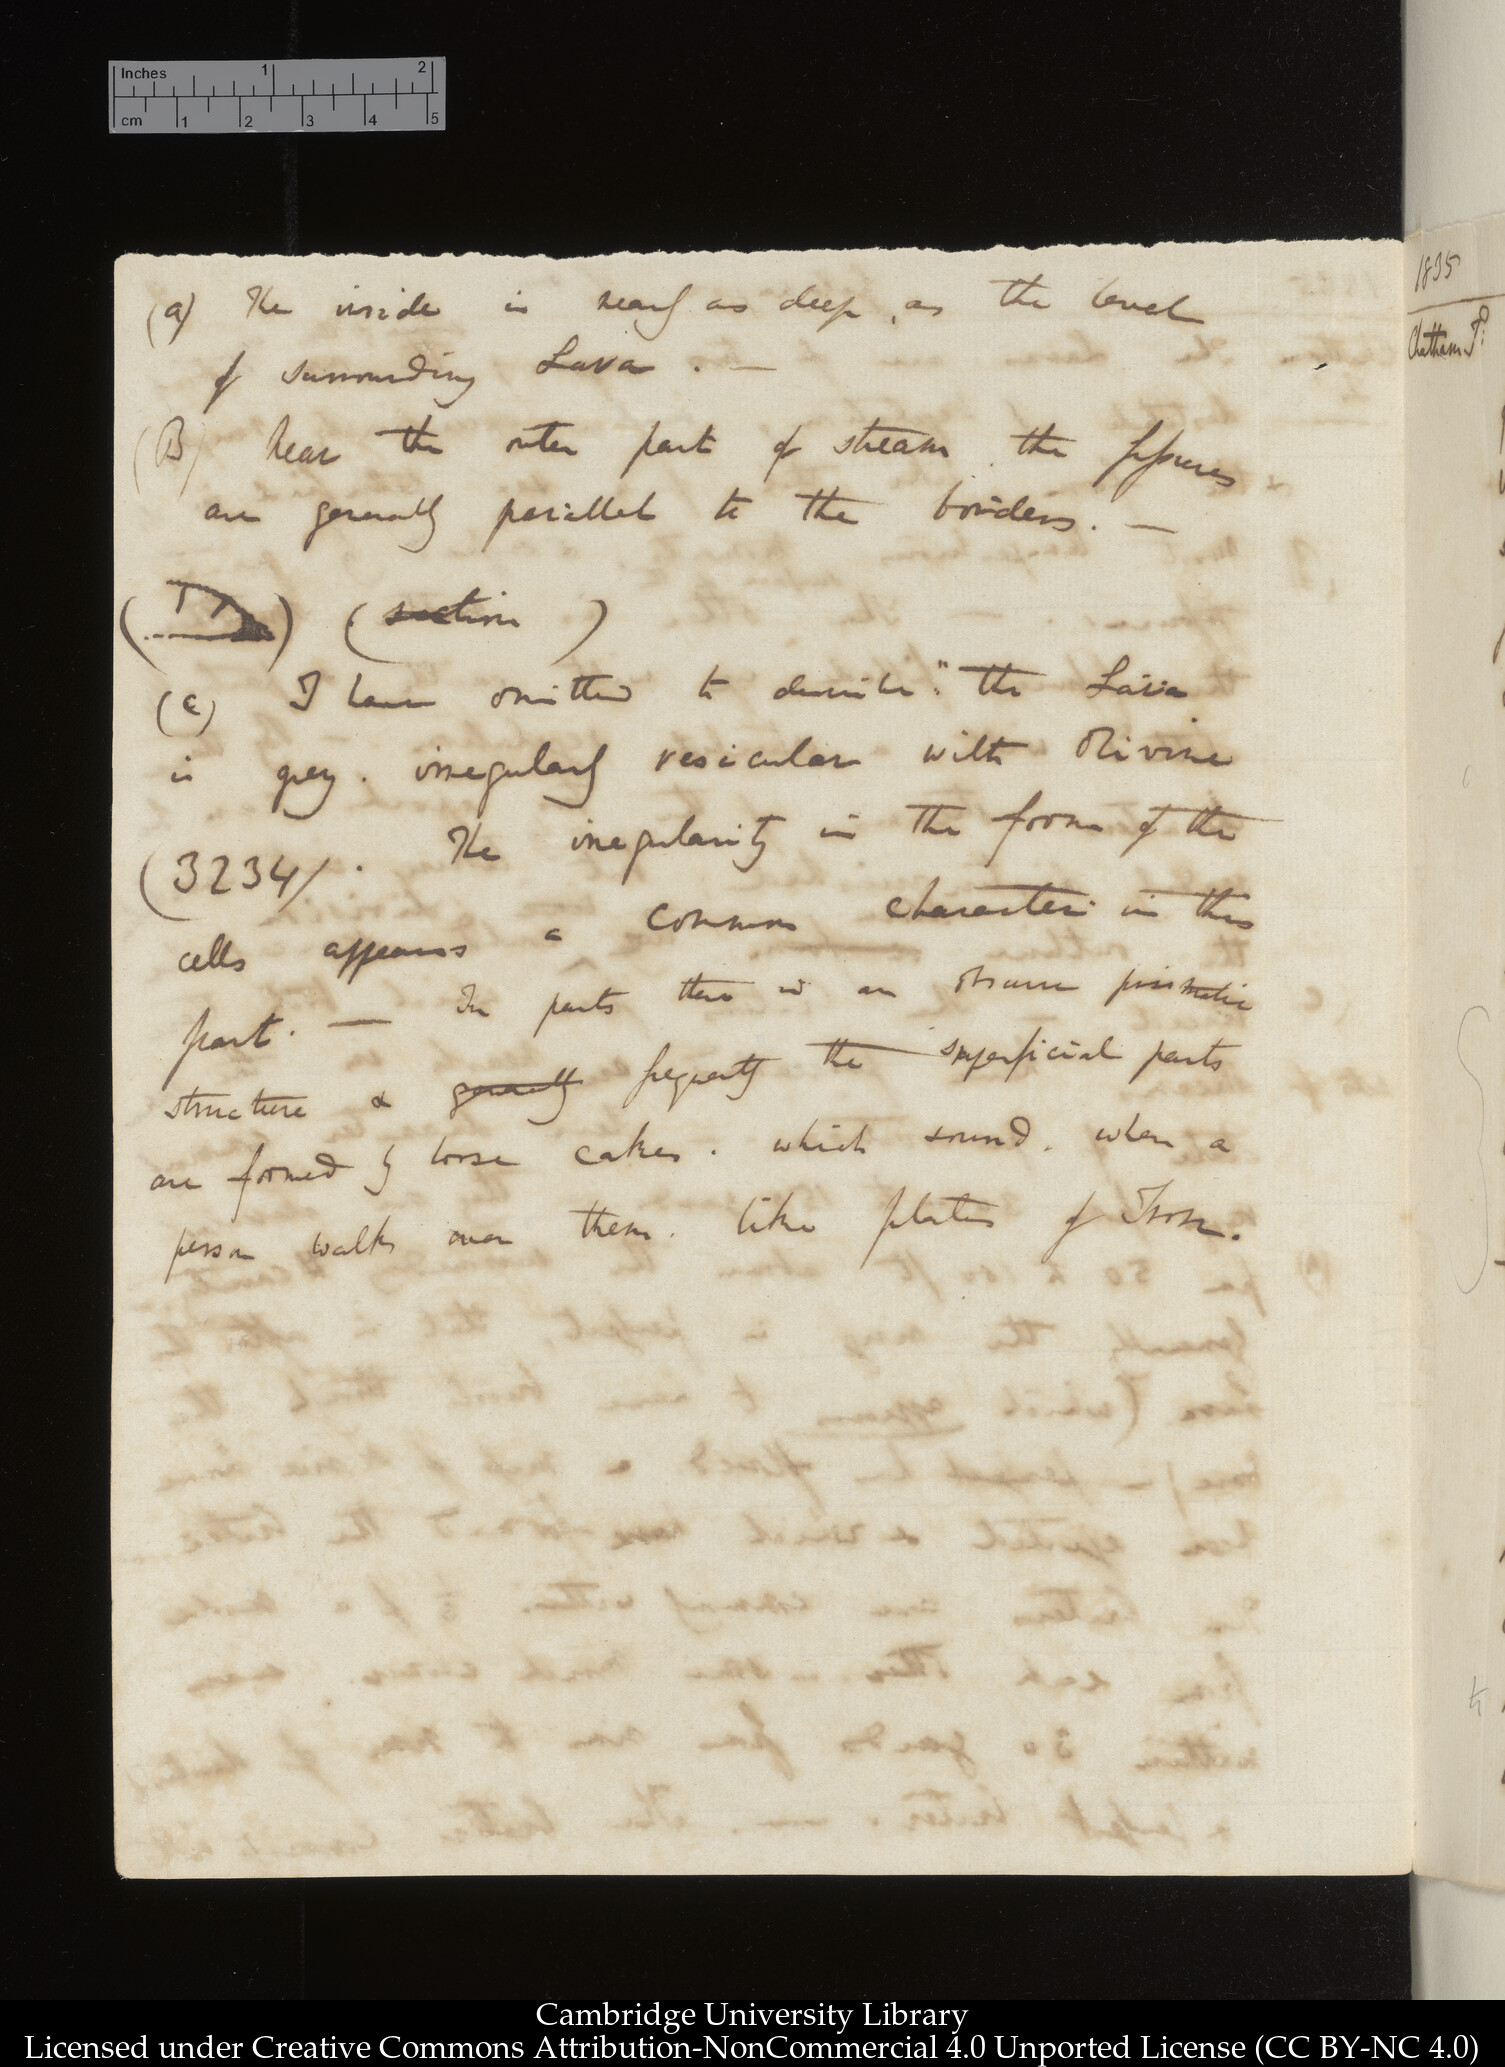 Inches 1 2
cm 1 2 3 4 5
1835
Chatham Isd:
(a) The inside is nearly as deep, as the level
of surrounding Lava. —
(B) Near the outer part of stream the fissures
are generally parallel to the borders. —
(section)
(c) I have omitted to describe: the Lava
is grey. irregularly vesicular with Olivine
(3234). The irregularity in the form of the
cells appears a common character in this
part. — In parts there is an obscure prismatic
structure & generally frequently the superficial parts
are formed by loose cakes. which sound. when a
person walks over them. like plates of Iron.
Cambridge University Library
Licensed under Creative Commons Attribution-NonCommercial 4.0 Unported License (CC BY-NC 4.0)